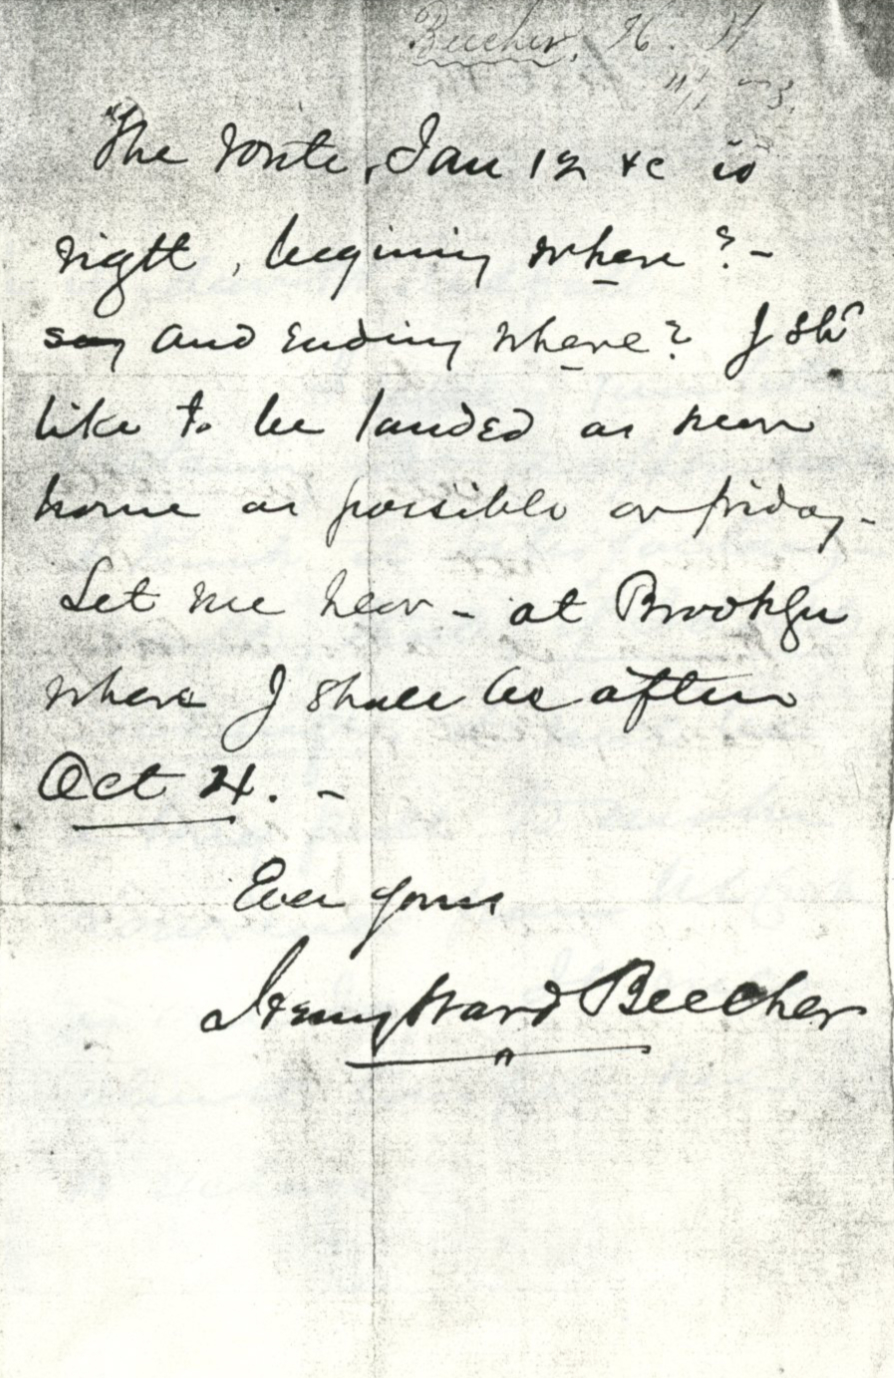 Beecher, H. W.
The route, Jan 12 &c is
right, begining where? -
say and Ending where? I shd
like to be landed as near
home as possible on friday -
Let me hear - at Brooklyn
where I shall be after
Oct 21. -
Ever yours
Henry Ward Beecher